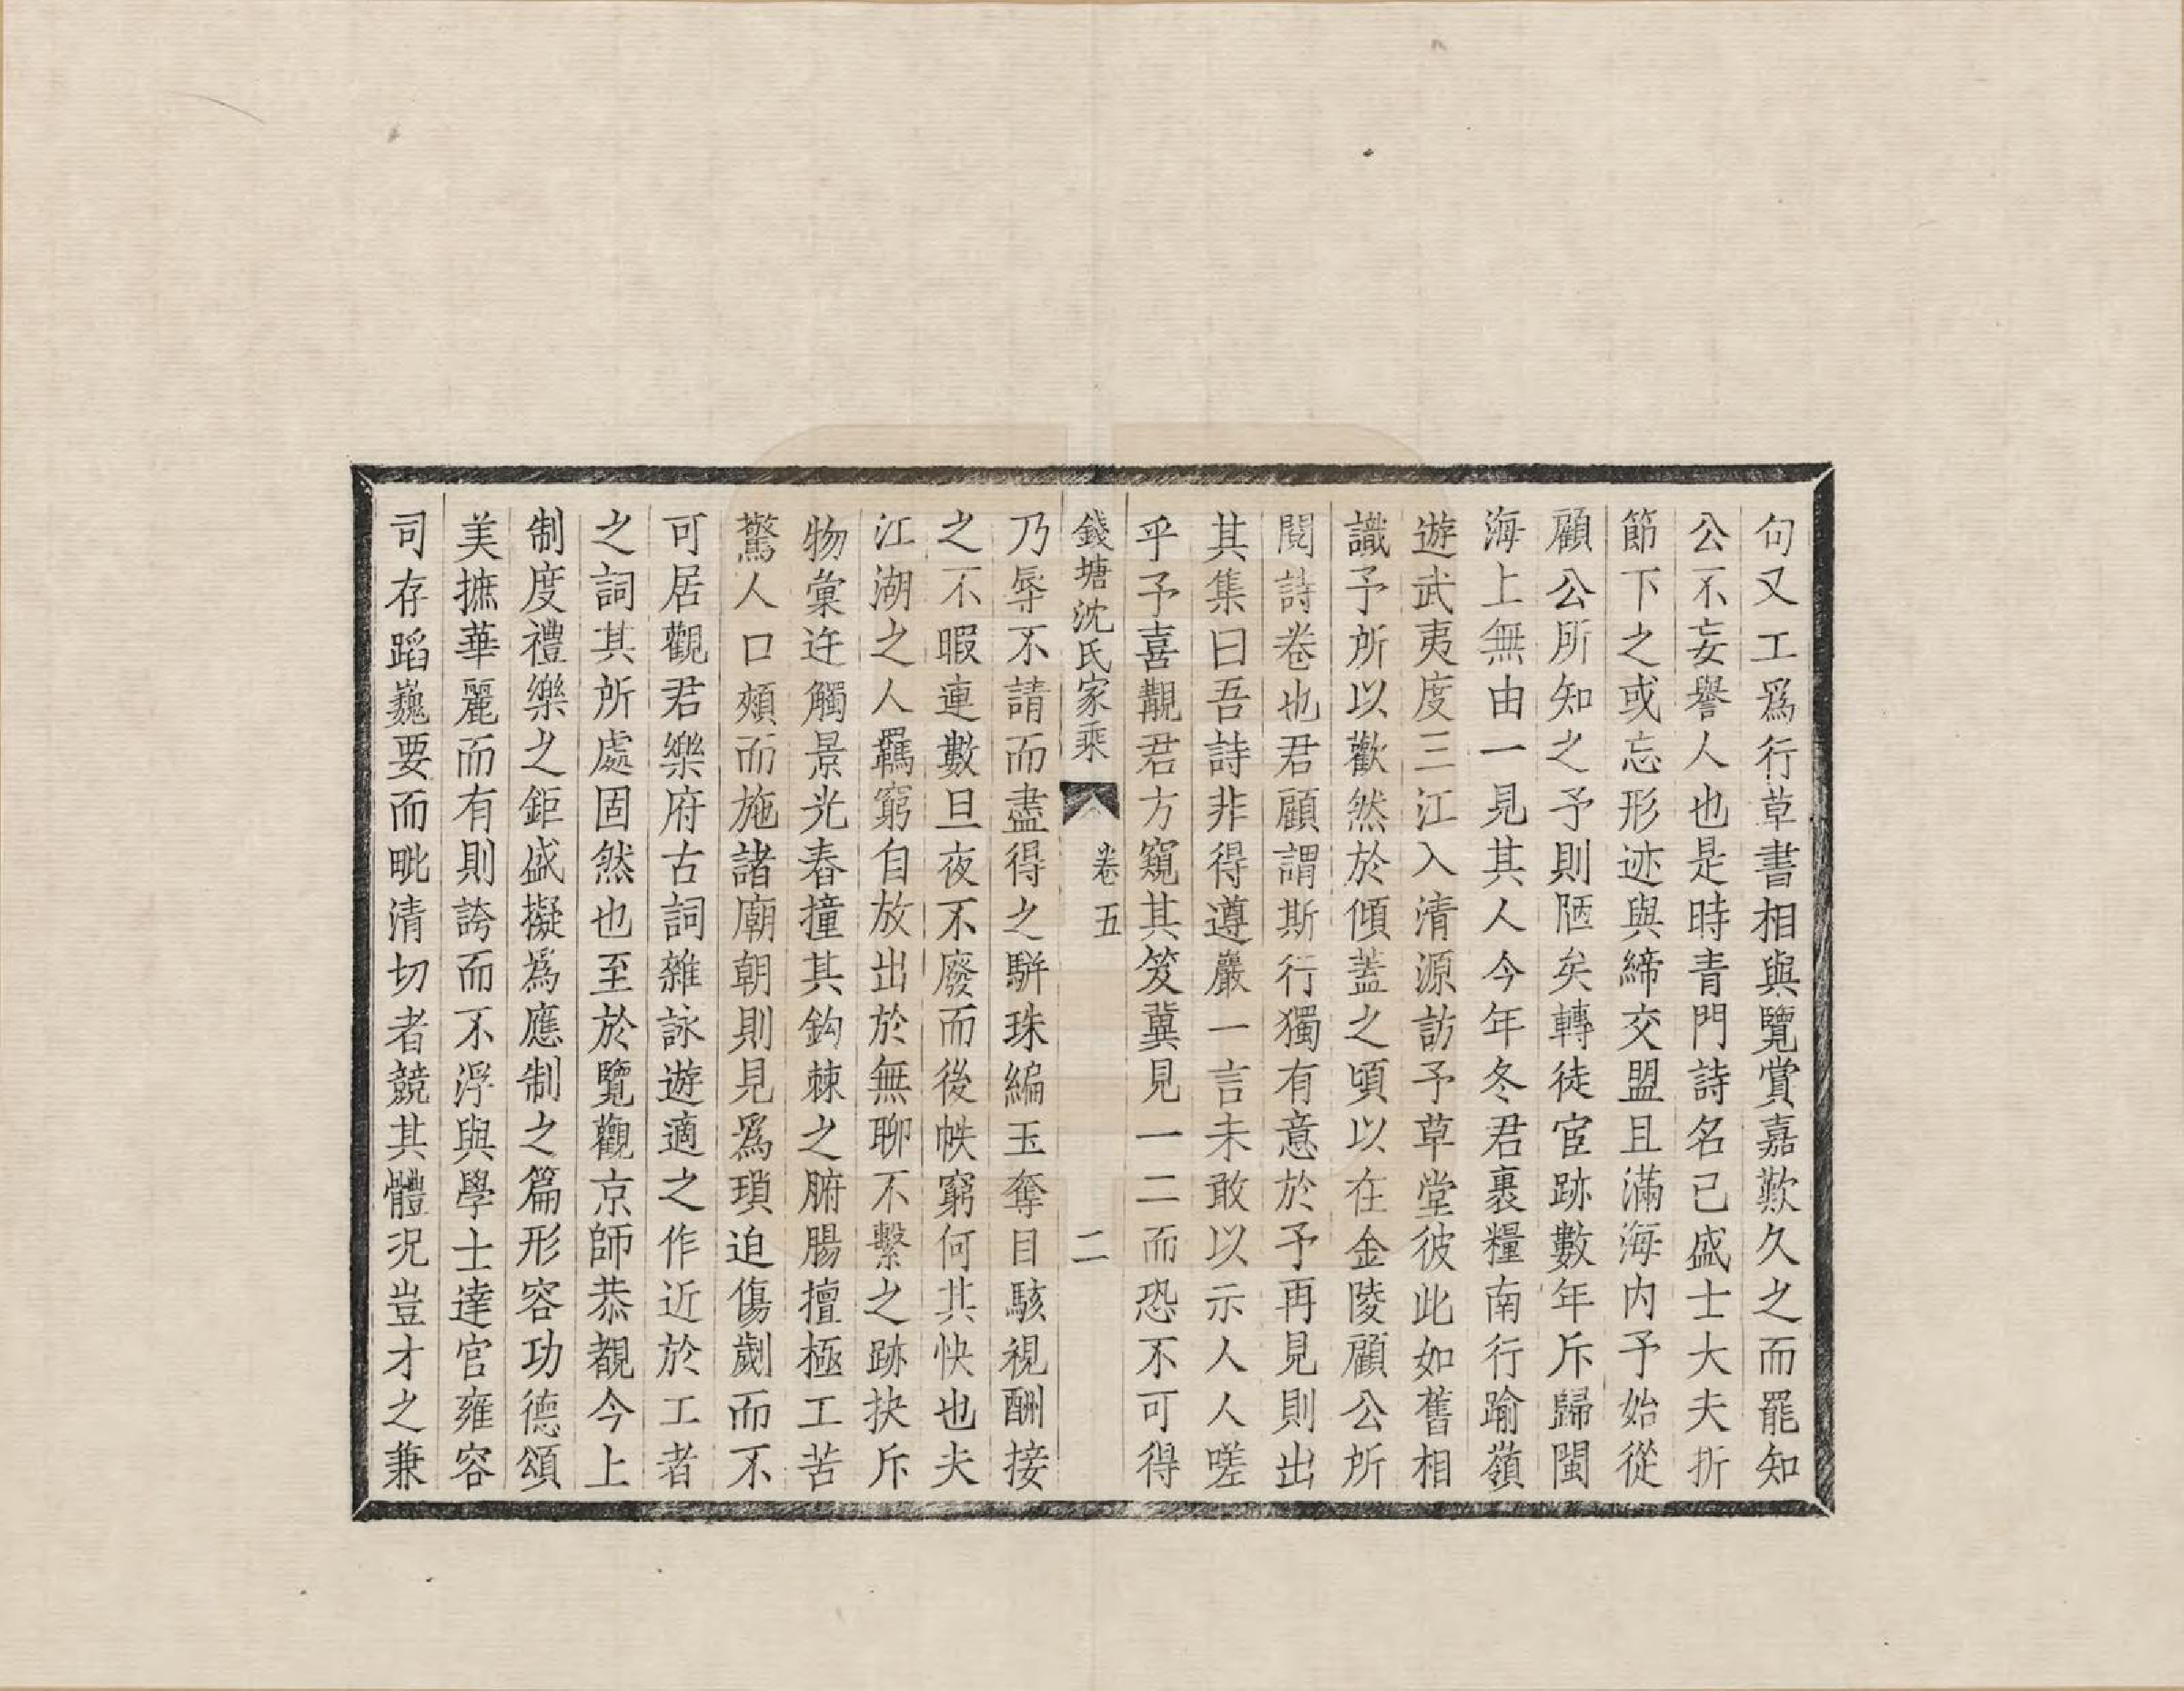 句又工爲行草書相與覽賞嘉歎久之而罷知
公不妄譽人也是時青門詩名已盛士大夫折
節下之或忘形迹與締交盟且滿海内予始從
顧公所知之予則陋矣轉徒宦跡數年斥歸閩
海上無由一見其人今年冬君裹糧南行踰嶺
遊武夷度三江入清源訪予草堂彼此如舊相
識予所以歡然於傾蓋之頃以在金陵顧公所
閱詩卷也君顧謂斯行獨有意於予再見則出
其集曰吾詩非得遵巖一言未敢以示人人嗟
乎予喜覯君方窺其笈冀見一二而恐不可得
錢塘沈氏家乘 卷五 二
乃辱不請而盡得之駢珠編玉奪目駭視酬接
之不暇連數旦夜不廢而後帙窮何其快也夫
江湖之人羈窮自放出於無聊不繫之跡抉斥
物彙迕觸景光舂撞其鈎棘之腑腸擅極工苦
驚人口頰而施諸廟朝則見爲瑣迫傷劌而不
可居觀君樂府古詞雜詠遊適之作近於工者
之詞其所處固然也至於覽觀京師恭覩今上
制度禮樂之鉅盛擬爲應制之篇形容功德頌
美摭華麗而有則誇而不浮與學士達官雍容
司存蹈巍要而毗清切者競其體況豈才之兼